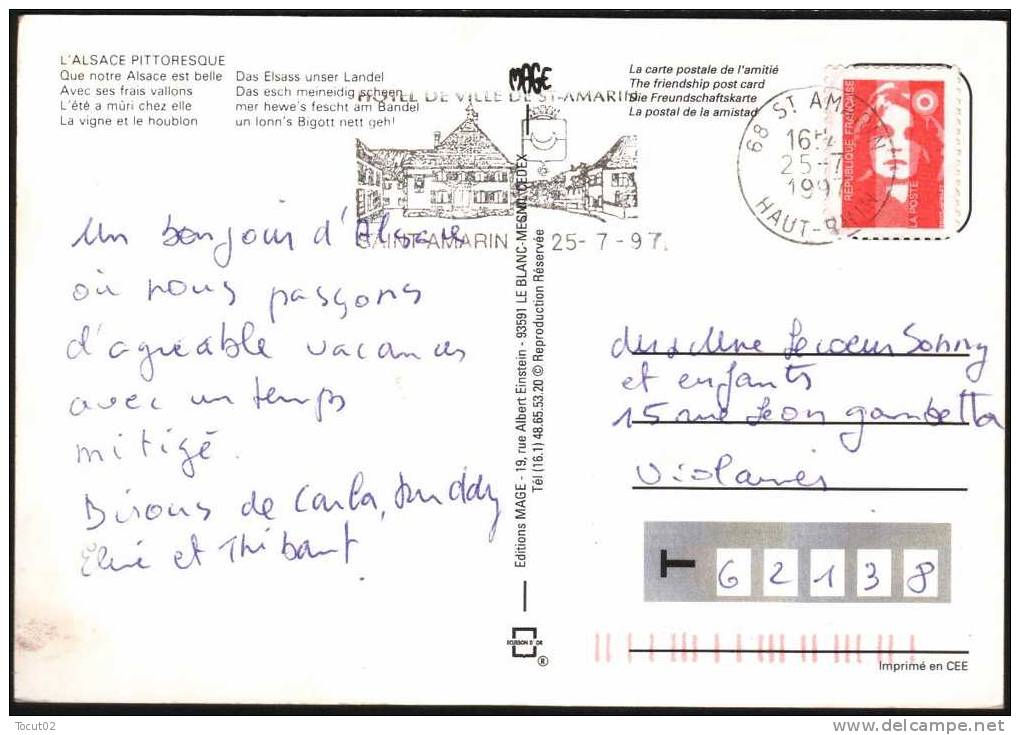 L'ALSACE PITTORESQUE
Que notre Alsace est belle
Avec ses frais vallons
L'été a mûri chez elle
La vigne et le houblon
Das Elsass unser Landel
Das esch meineidig scheen
mer hewe's fescht am Bandel
un lonn's Bigott nett geh!
MAGE
HOTEL DE VILLE DE ST-AMARIN
SAINT-AMARIN 25-7-97
La carte postale de l'amitié
The friendship post card
Die Freundschaftskarte
La postal de la amistad
68 ST AMARIN
25-7
HAUT-RHIN
RÉPUBLIQUE FRANÇAISE
LA POSTE
Un bonjour d'Alsace
où nous passons
d'agréable vacances
avec un temps
mitigé.
Bisous de Carla,
et Thibaut
Editions MAGE - 19, rue Albert Einstein - 93591 LE BLANC-MESNIL CEDEX
Tél (16.1) 48.65.53.20 © Reproduction Réservée
Mme Lecoeur Sonny
et enfants
15 rue Leon gambetta
Violaines
T 62138
®
Imprimé en CEE
Tocut02
www.delcampe.net